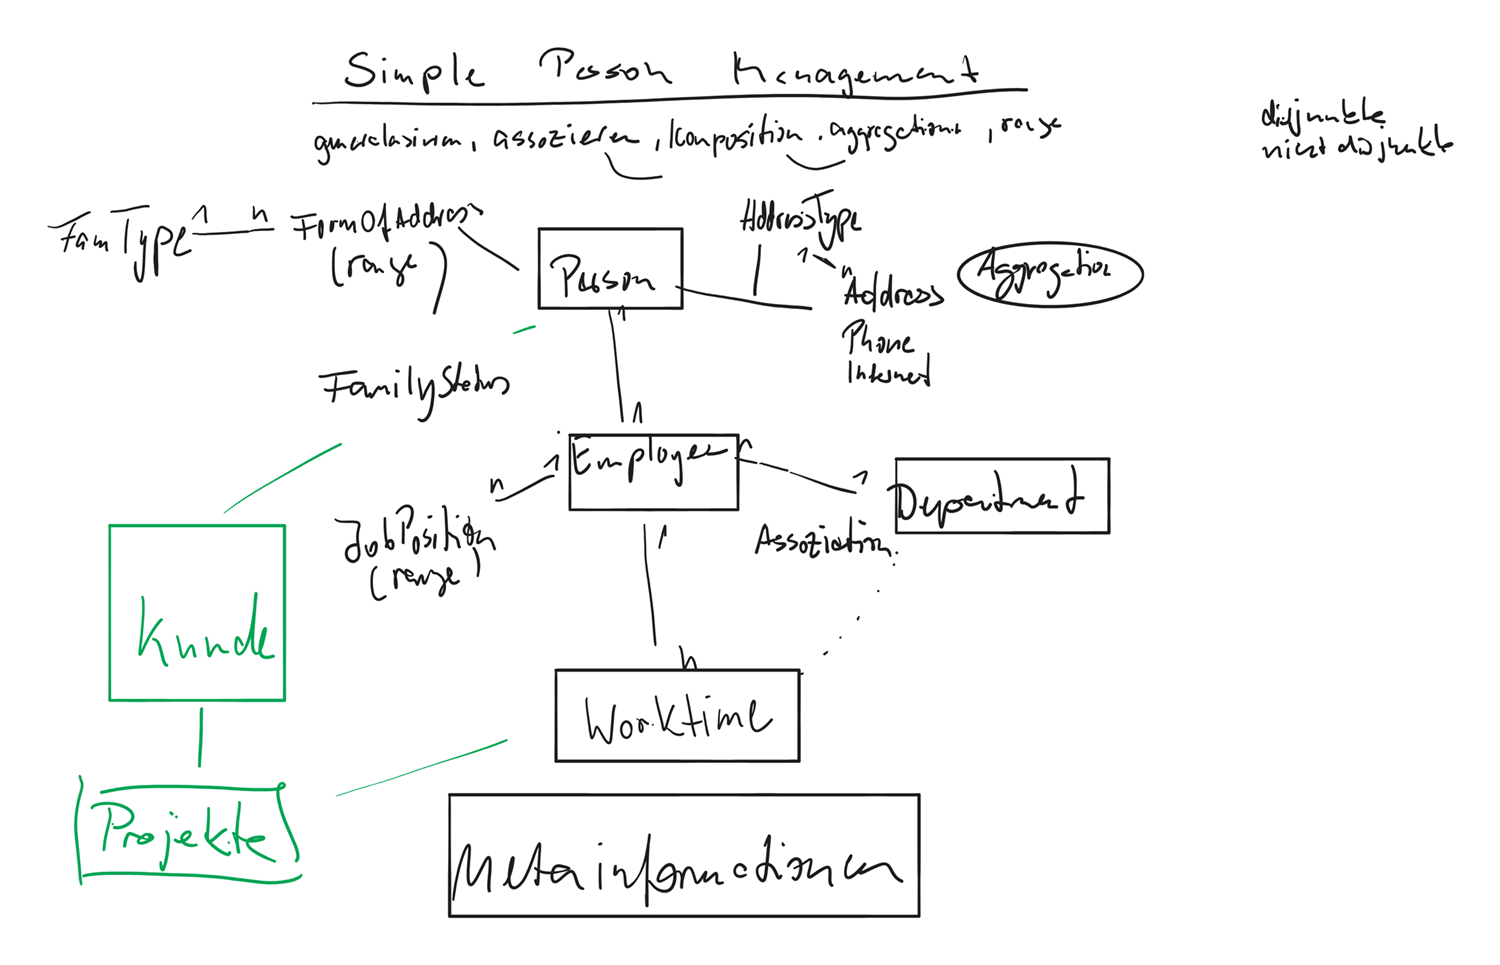 Simple Person Management
generalisieren, assoziieren, Komposition, aggregation, range
disjunkte
nicht disjunkte
FamType 1 n FormOfAddress
(range)
Person
1
AddressType
1 n
Address
Phone
Internet
Aggregation
FamilyStatus
1
Employee
n 1
n 1
Department
JobPosition
(range)
1
Assoziation
n
Kunde
Worktime
Projekte
Metainformationen